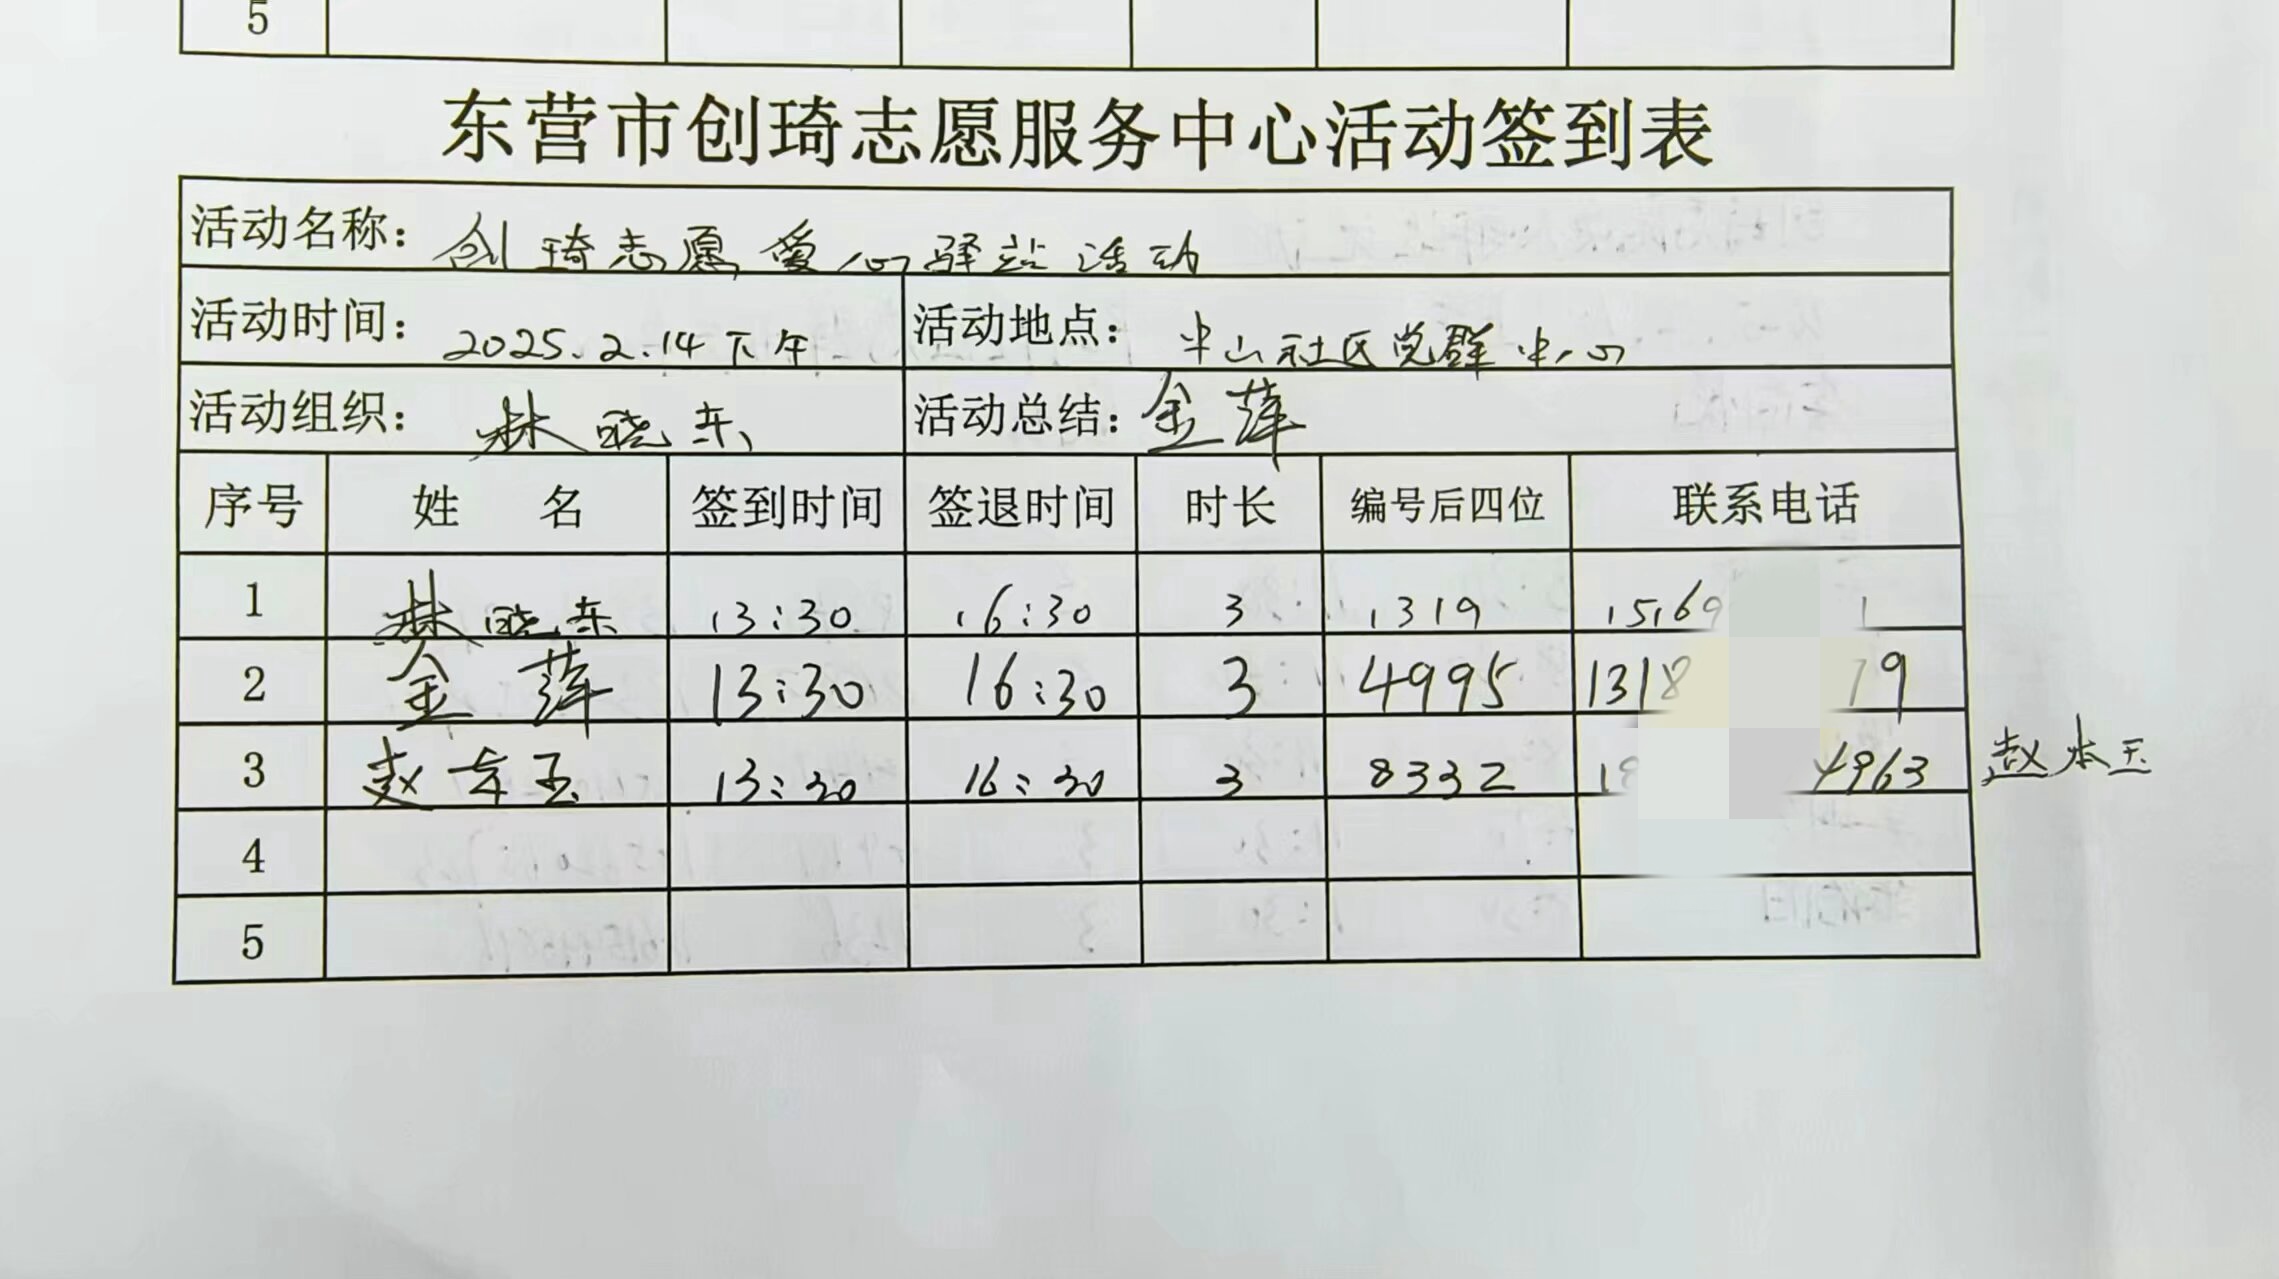 5
东营市创琦志愿服务中心活动签到表
活动名称: 创琦志愿爱心驿站活动
活动时间: 2025.2.14下午 活动地点: 中山社区党群中心
活动组织: 林晓东 活动总结: 金萍
序号 姓 名 签到时间 签退时间 时长 编号后四位 联系电话
1 林晓东 13:30 16:30 3 1319 1569 1
2 金萍 13:30 16:30 3 4995 1318 79
3 赵本玉 13:30 16:30 3 8332 18 4963 赵本玉
4
5